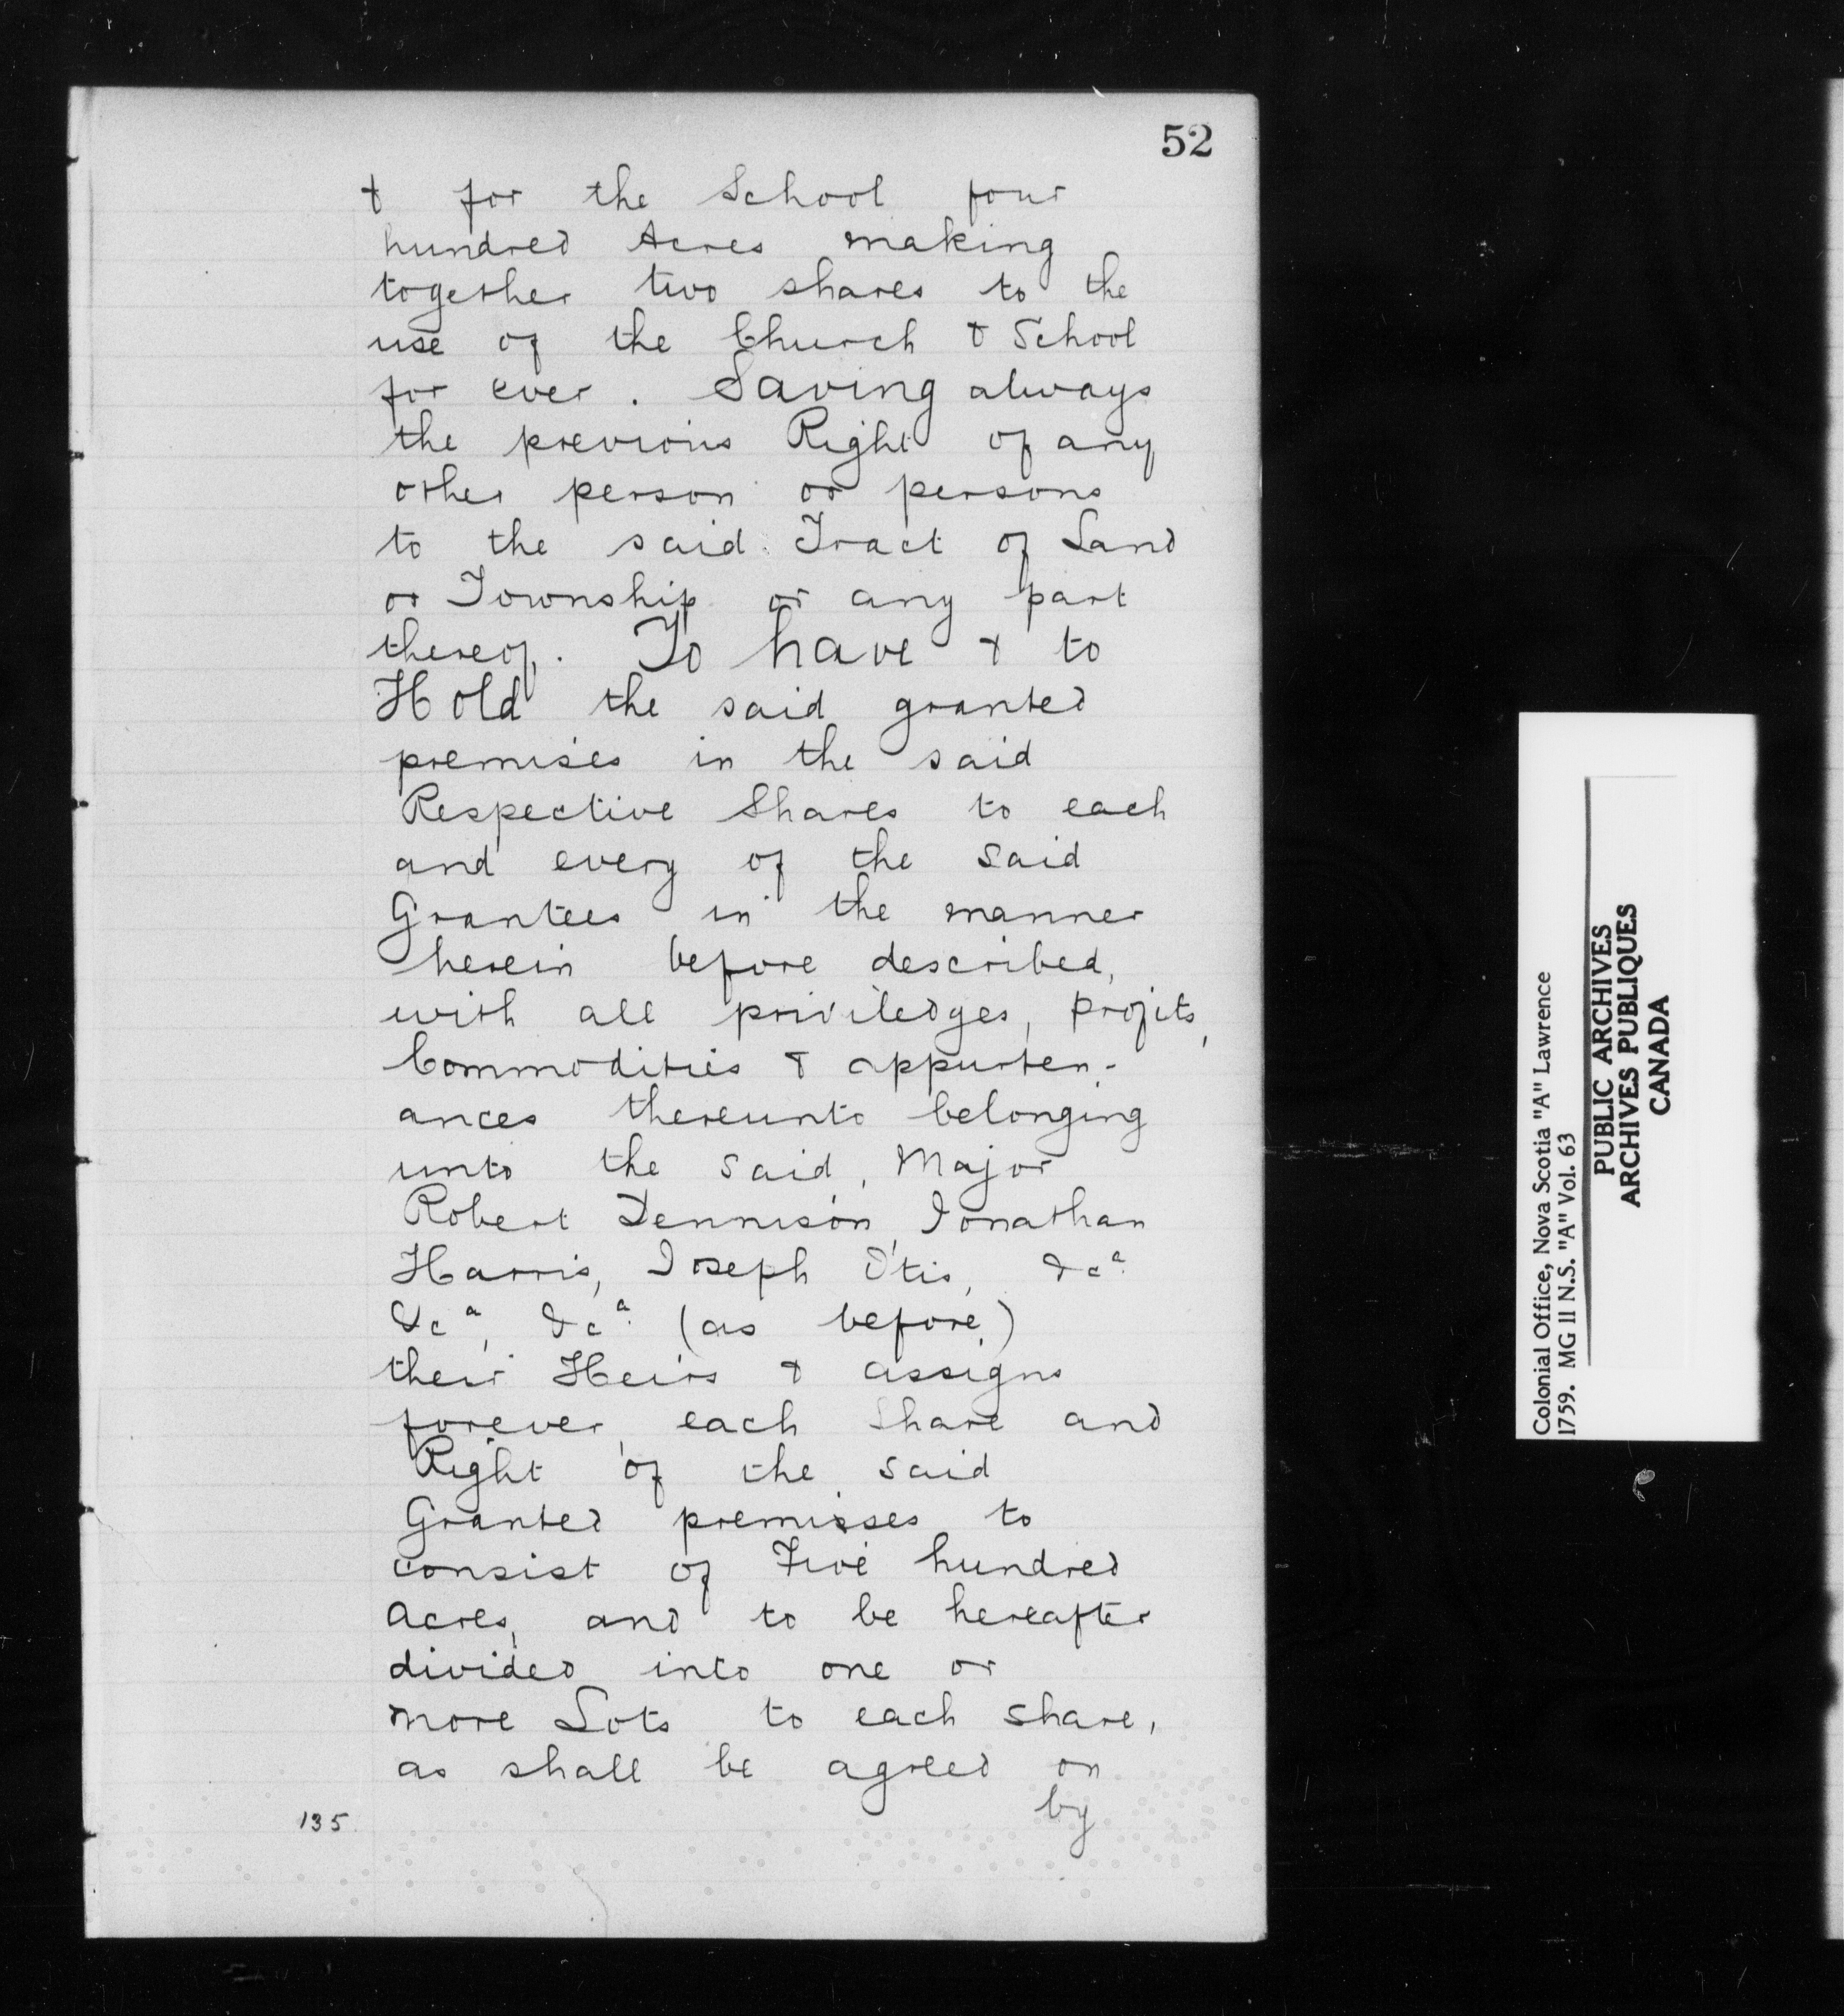 52
& for the School four
hundred Acres making
together two shares to the
use of the Church & School
for ever. Saving always
the previous Right of any
other person or persons
to the said Tract of Land
or Township or any part
thereof. To have & to
Hold the said granted
premises in the said
Respective Shares to each
and every of the said
Grantees in the manner
herein before described,
with all priviledges, profits,
Commodities & appurten-
ances thereunto belonging
unto the said, Major
Robert Dennison, Jonathan
Harris, Joseph Otis, &cª
&cª, &cª (as before)
their Heirs & assigns
forever, each Share and
Right of the said
Granted premisses to
consist of Five hundred
Acres, and to be hereafter
divided into one or
more Lots to each share,
as shall be agreed on
by
135
Colonial Office, Nova Scotia "A" Lawrence
1759. MG II N.S. "A" Vol. 63
PUBLIC ARCHIVES
ARCHIVES PUBLIQUES
CANADA